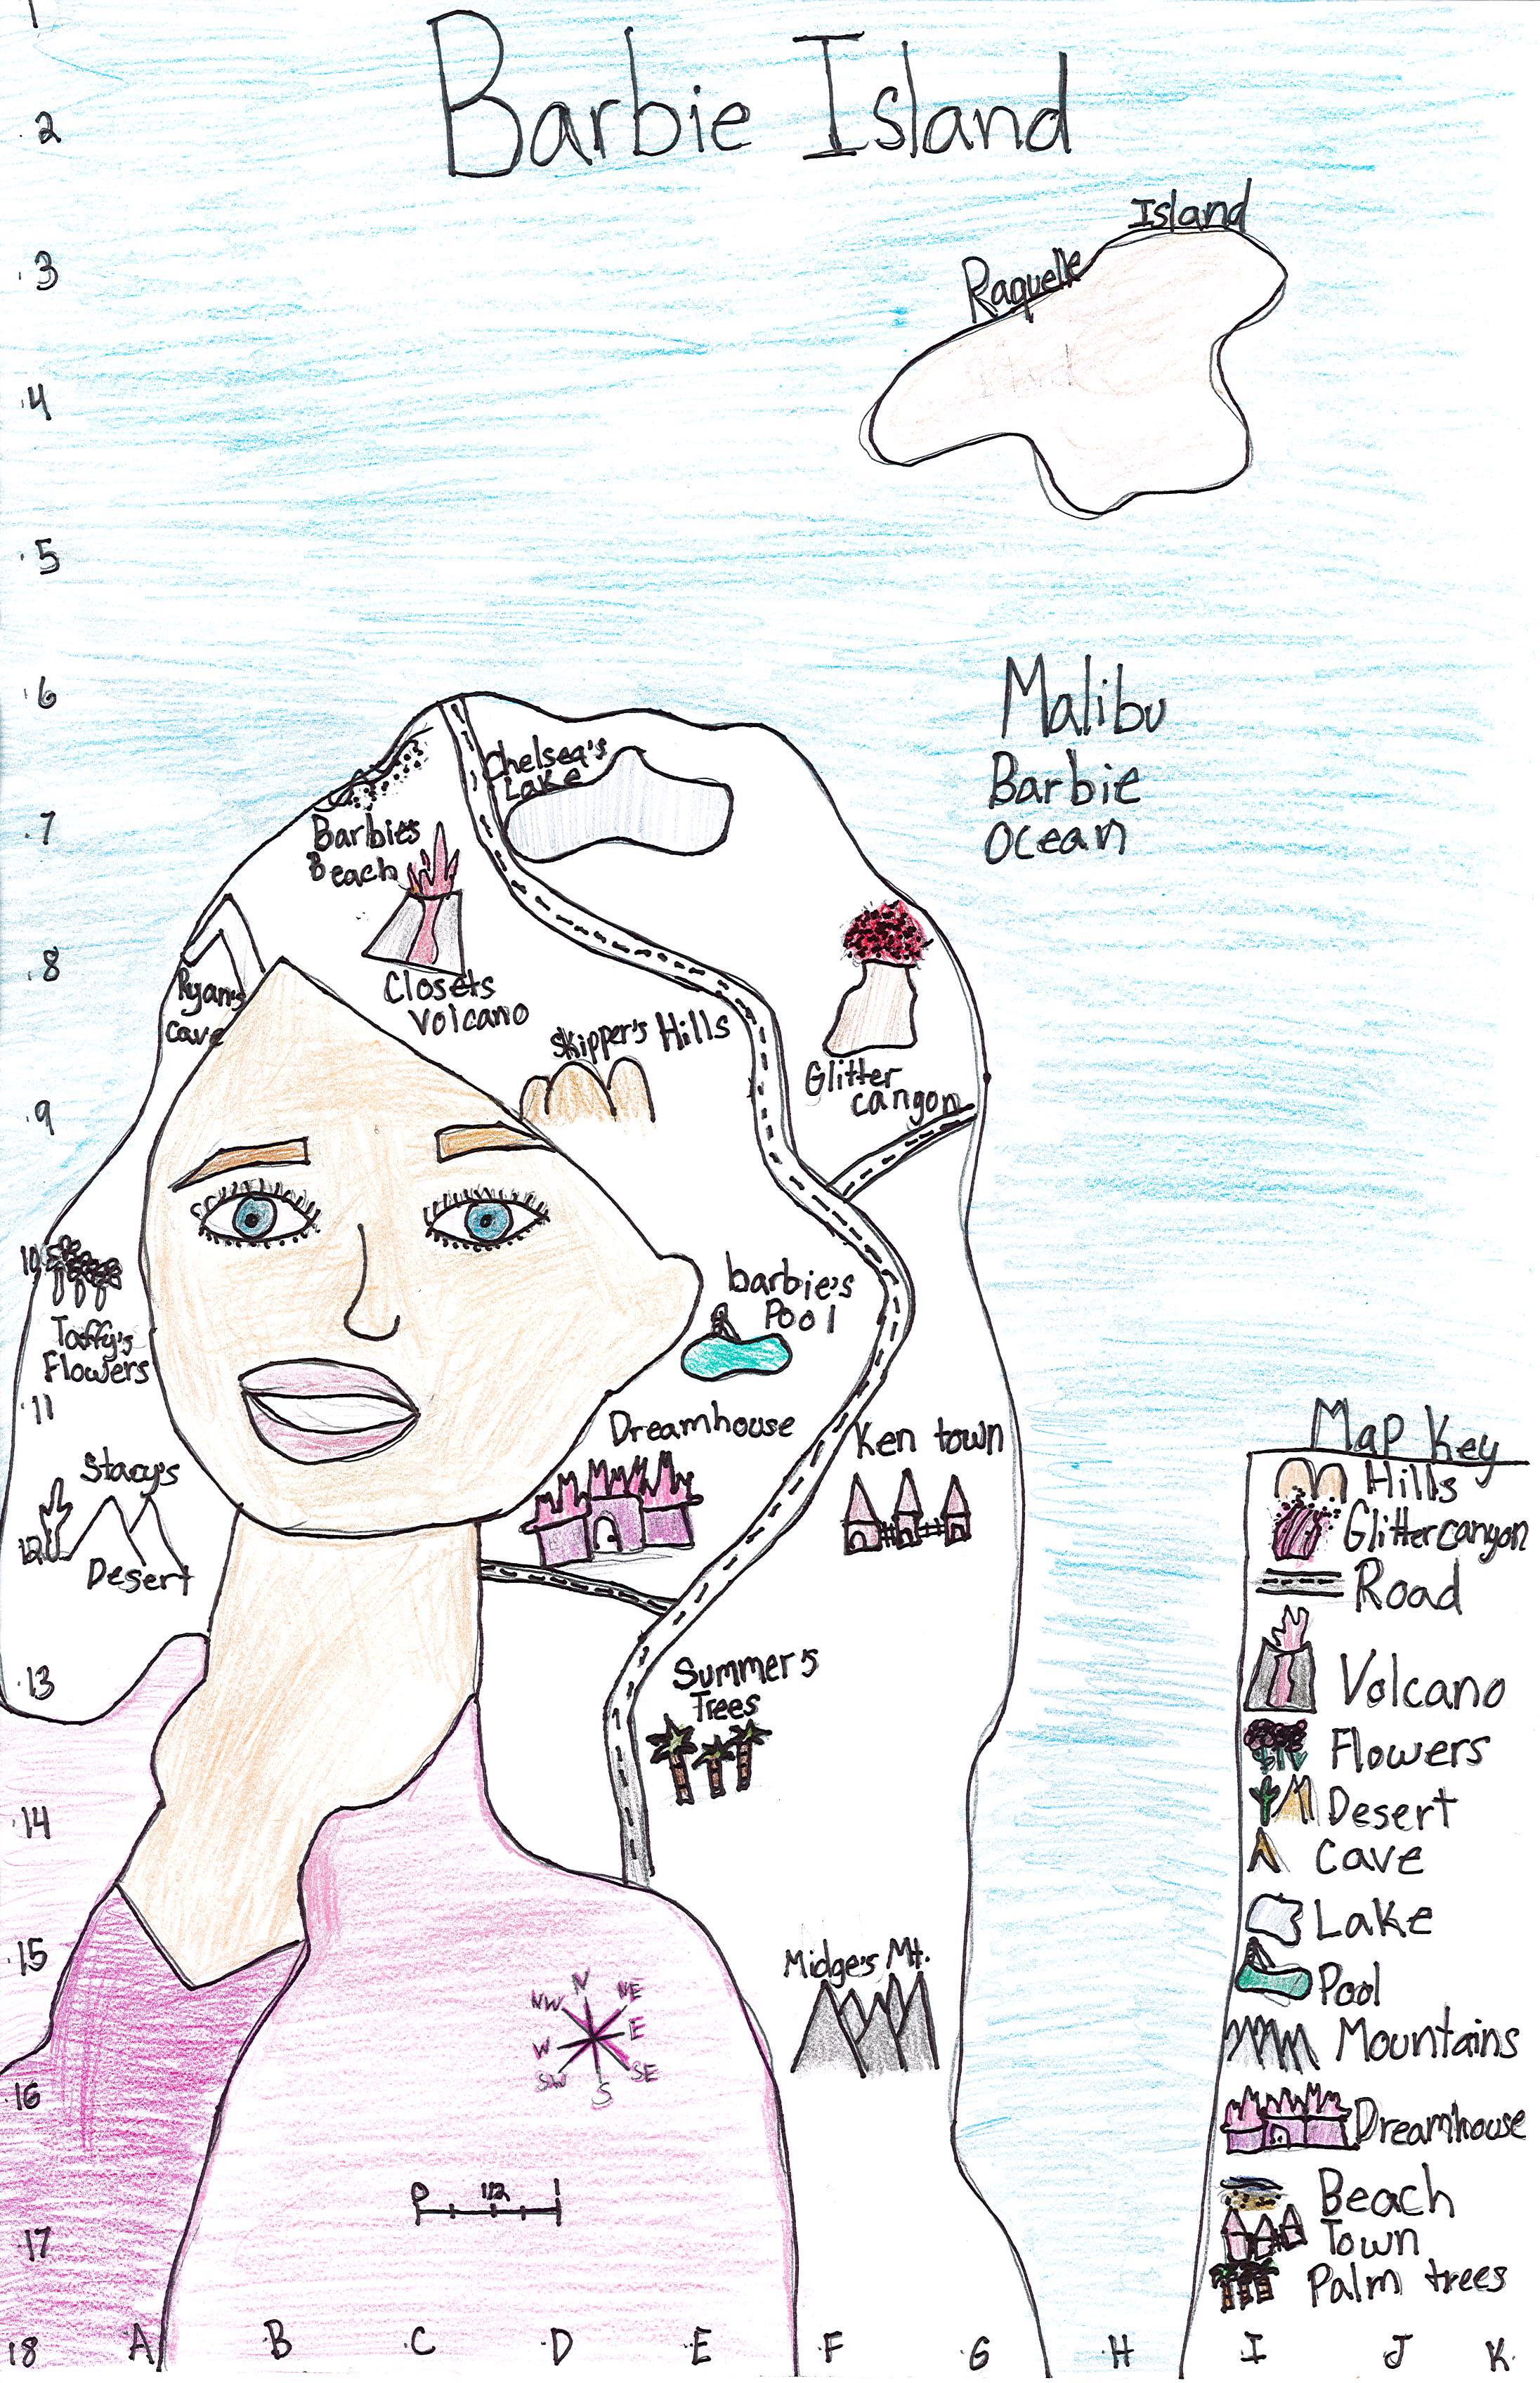 Barbie Island
1
2
3
4
5
6
7
8
9
10
11
12
13
14
15
16
17
18
A
B
C
D
E
F
G
H
I
J
K
Raquelle Island
Malibu
Barbie
Ocean
Chelsea's
Lake
Barbie's
Beach
Closets
Volcano
Ryan's
cave
Skipper's Hills
Glitter
canyon
barbie's
Pool
Taffy's
Flowers
Dreamhouse
Ken town
Stacy's
Desert
Summer's
Trees
Midge's Mt.
N
NE
E
SE
S
SW
W
NW
0 1/2 1
Map Key
Hills
Glittercanyon
Road
Volcano
Flowers
Desert
Cave
Lake
Pool
Mountains
Dreamhouse
Beach
Town
Palm trees